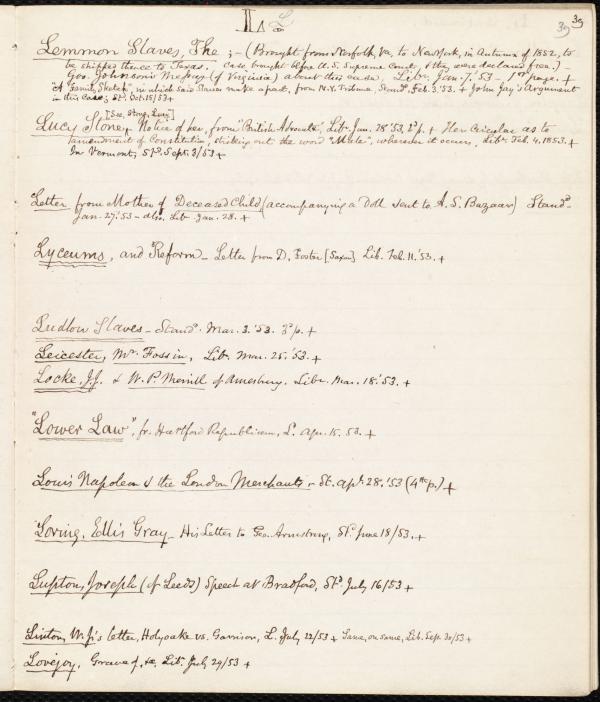 L L 39 39
Lemmon Slaves, The ;- (Brought from Norfolk, Va. to New York, in Autumn of 1852, to
be shipped thence to Texas. Case brought before U. S. Supreme Court, & they were declared free.) -
Gov. Johnson's Message (of Virginia) about this case, Libr. Jan. 7. '53 - 1st page. +
"A Family Sketch" in which said Slaves make a part, from N.Y. Tribune, Stand. Feb. 3. '53. + John Jay's Argument
in this case; St. Oct. 15/53 +
[See, Stone, Lucy]
Lucy Stone, Notice of her, from "British Advocate", Lib. Jan. 28 '53, 2d p. + Her Circular as to
amendment of Constitution, striking out the word "Male", wherever it occurs, Libr. Feb. 4. 1853. +
In Vermont, Std. Sept. 3/53 +
Letter from Mother of Deceased Child (accompanying a Doll sent to A. S. Bazaar) Stand.
Jan. 27. '53 - also, Lib. Jan. 28. +
Lyceums, and Reform - Letter from D. Foster [Saxon] Lib. Feb. 11. '53. +
Ludlow Slaves - Stand. Mar. 3. '53. 3d p. +
Leicester, Mr. Fossin, Lib. Mar. 25. '53. +
Locke, J.J. & W. P. Merrill of Amesbury. Libr. Mar. 18. '53. +
"Lower Law", fr. Hartford Republican, L. Apr. 15. 53. +
Louis Napoleon & the London Merchants - St. Apl. 28. '53 (4th p.) +
Loring, Ellis Gray - His Letter to Geo. Armstrong, Std. June 18/53. +
Lupton, Joseph (of Leeds) Speech at Bradford, Std. July 16/53 +
Linton, W. J.'s letter, Holyoake vs. Garrison, L. July 22/53 + Same, on same, Lib. Sep. 30/53 +
Lovejoy, Grave of, &c. Lib. July 29/53 +